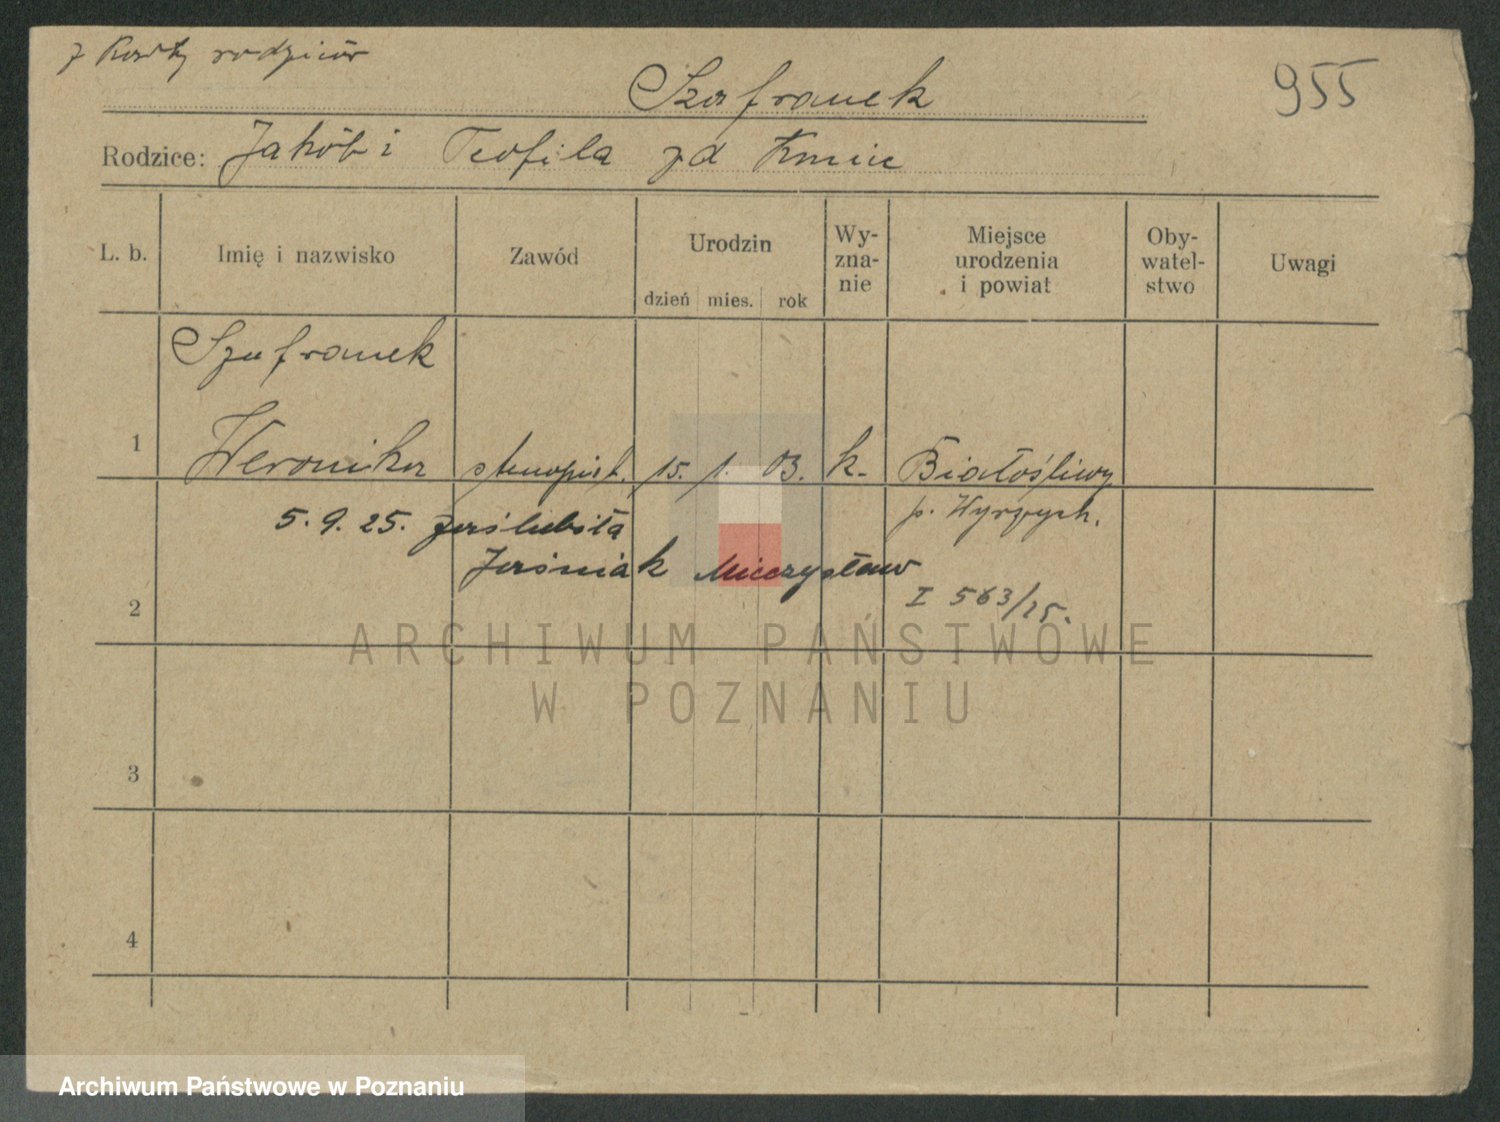 z Karty rodziców
Szafranek
955
Rodzice: Jakób i Teofila zd Kmiec
L. b.
Imię i nazwisko
Zawód
Urodzin
dzień mies. rok
Wy-
zna-
nie
Miejsce
urodzenia
i powiat
Oby-
watel-
stwo
Uwagi
Szafranek
1 Weronika stenopist. 15. 1. 03. k. Białośliwy
p. Wyrzysk.
5. 9. 25. zaślubiła
Jaśniak Mieczysław
I 563/25.
2
ARCHIWUM PAŃSTWOWE
W POZNANIU
3
4
Archiwum Państwowe w Poznaniu